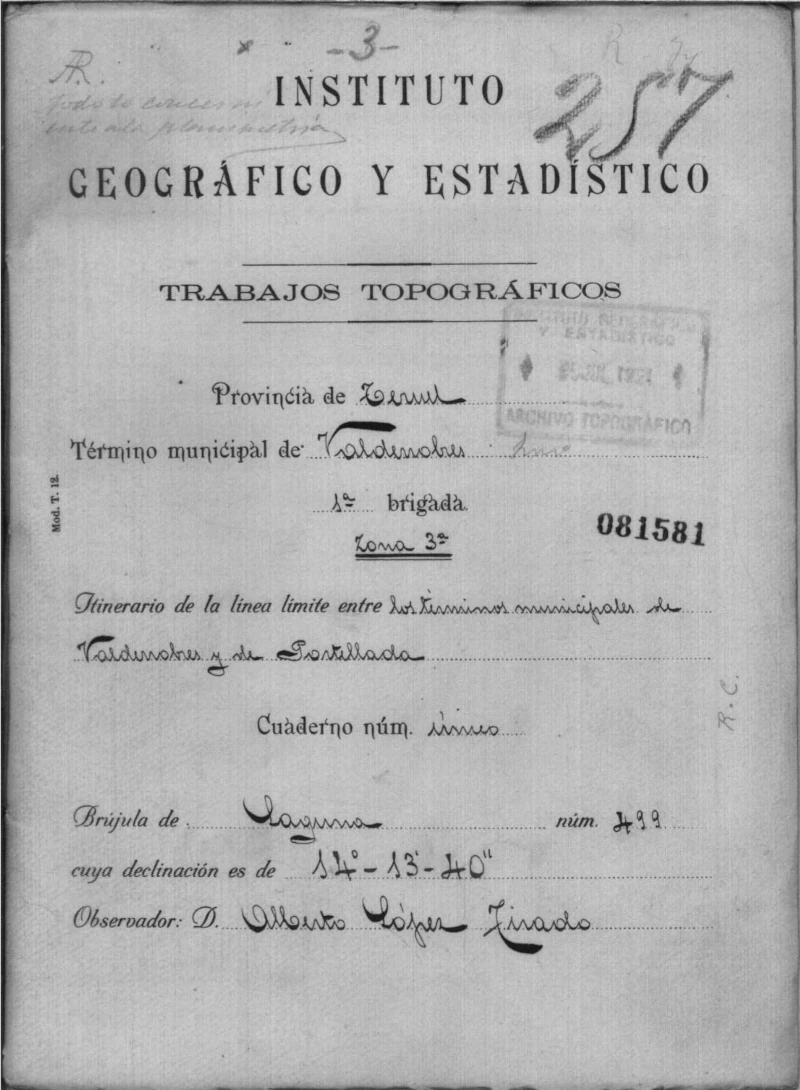 -3-
AR.
257
INSTITUTO
GEOGRÁFICO Y ESTADÍSTICO
TRABAJOS TOPOGRÁFICOS
Y ESTADÍSTICO
ARCHIVO TOPOGRÁFICO
Provincia de Teruel
Término municipal de Valderrobres
1ª brigada
Zona 3ª
081581
Mod. T. 12.
Itinerario de la línea límite entre los términos municipales de
Valderrobres y de Portellada
R.C.
Cuaderno núm. único
Brújula de Laguna núm. 499
cuya declinación es de 14º-13'-40"
Observador: D. Alberto López Tirado